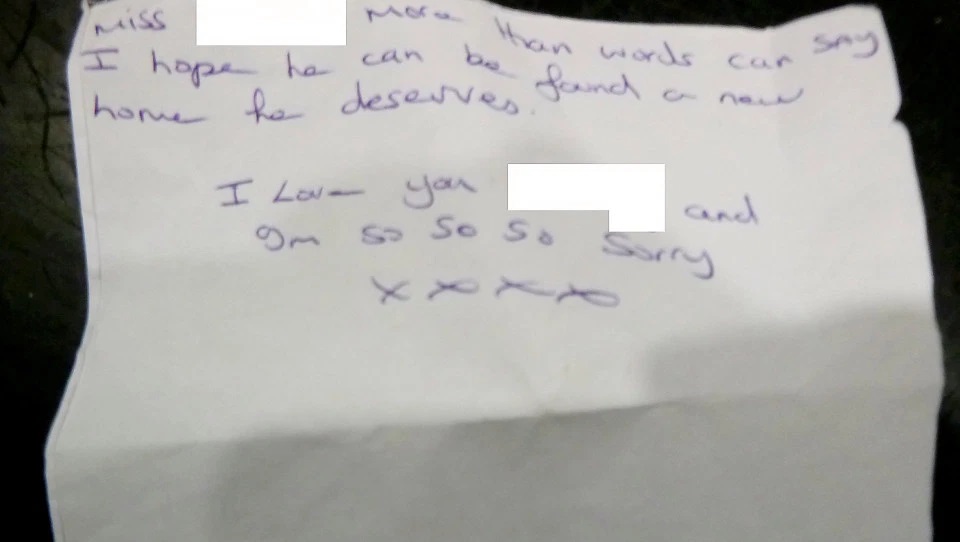 miss more than words can say
I hope he can be found a new
home he deserves.
I Love you and
Im so so so sorry
x x x x